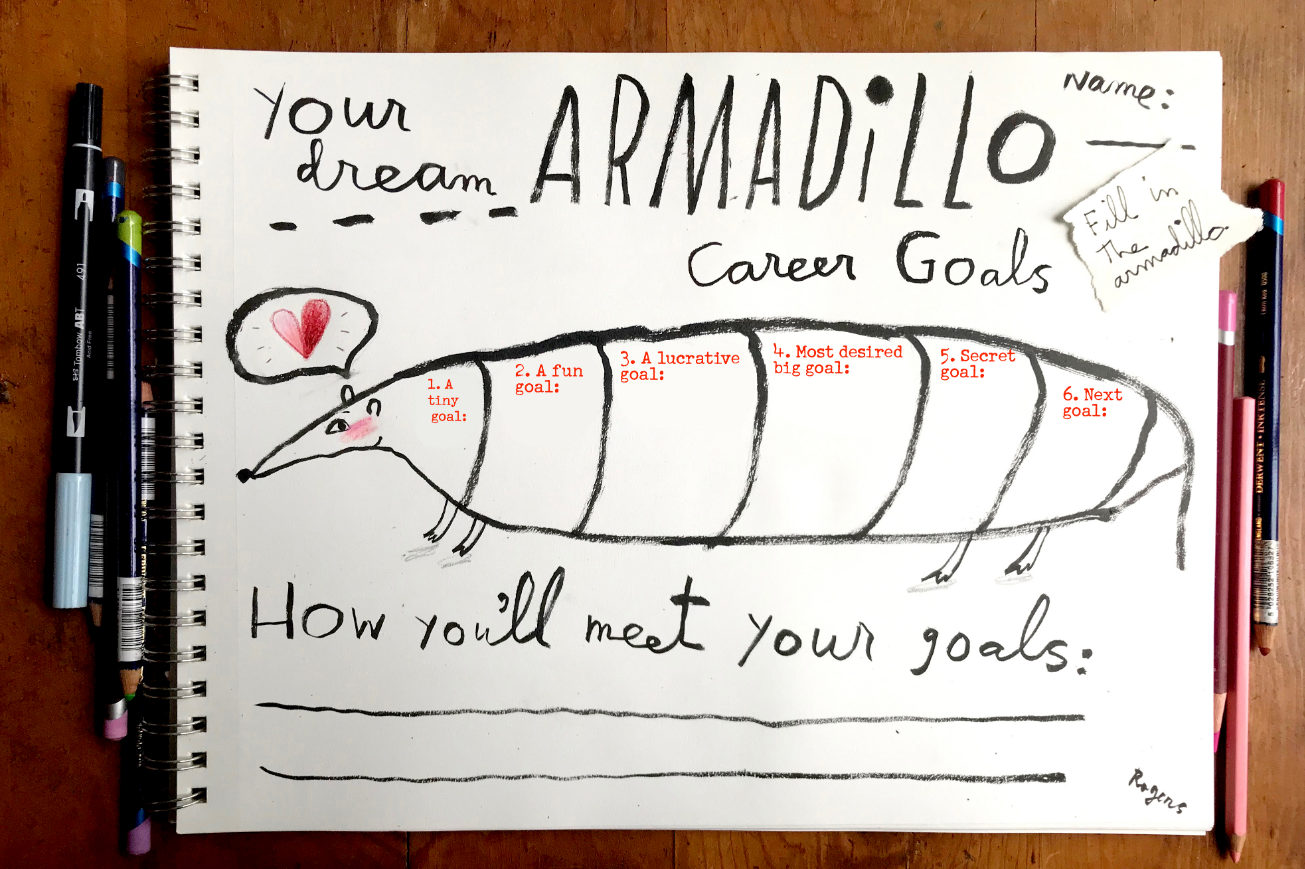 Your
dream
ARMADiLLO
Name:
Fill in
the
armadillo
Career Goals
1. A
tiny
goal:
2. A fun
goal:
3. A lucrative
goal:
4. Most desired
big goal:
5. Secret
goal:
6. Next
goal:
How you'll meet your goals:
Rogers
491
Tombow ABT
DERWENT • INKTENSE